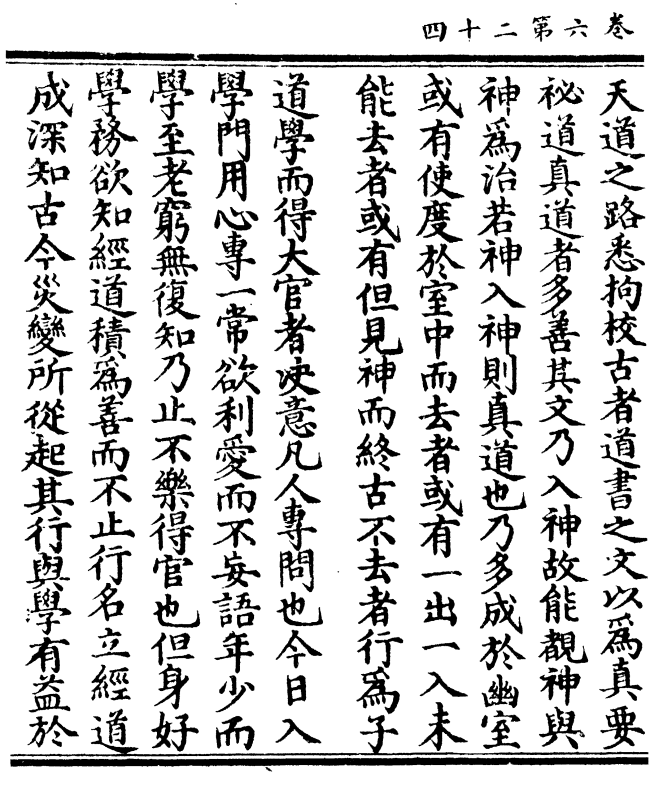 卷六第二十四
天道之路悉拘校古者道書之文以爲真要
祕道真道者多善其文乃入神故能覩神與
神爲治若神入神則真道也乃多成於幽室
或有使度於室中而去者或有一出一入未
能去者或有但見神而終古不去者行爲子
道學而得大官者决意凡人專問也今日入
學門用心專一常欲利愛而不妄語年少而
學至老窮無復知乃止不樂得官也但身好
學務欲知經道積爲善而不止行名立經道
成深知古今災變所從起其行與學有益於